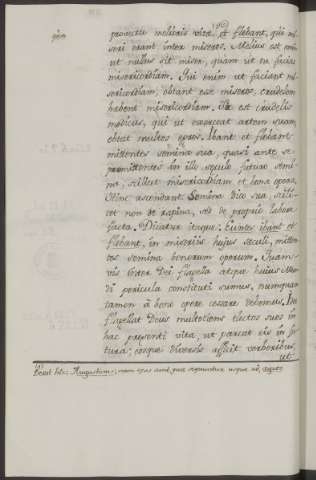 promittit melioris vitæ, et flebant, qui mi-
seri erant inter miseros. Melius est enim
ut nullus sit miser, quam ut tu facias
misericordiam. Qui enim ut faciant mi-
sericordiam, optant esse miseros, crudelem
habent misericordiam. Ita est crudelis
medicus, qui ut exerceat artem suam,
optat multos ægros. Ibant et flebant
mittentes semina sua, quasi ante se
præmittentes in illo seculo futuro semi-
na, scilicet misericordiam et bona opera.
Hinc ascendant. Semina dico sua, scili-
cet non de rapina, sed de proprio labore
facta. Dicatur itaque: Euntes ibant et
flebant, in miseriis hujus seculi, mitten-
tes semina bonorum operum. Quam-
vis inter Dei flagella atque hujus Mun-
di pericula constituti sumus, numquam
tamen a bono opere cessare debemus.
flagellat Deus multotiens electos suos in
hac præsenti vita, ut parcat eis in fu-
tura; eosque diversis afficit verberibus,
ut
Augustinus; nam ejus sunt, quæ sequuntur usque ad,